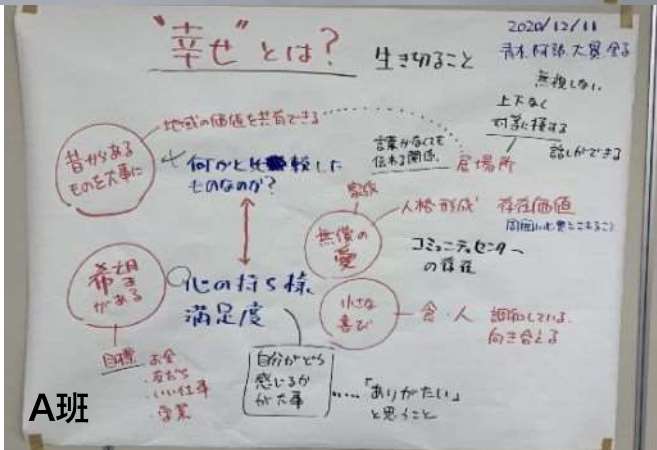 "幸せ"とは?
生き切ること
2020/12/11
青木 阿部 大貫 金子
無視しない
上下なく
対等に接する
話しができる
居場所
言葉がなくても
伝わる関係
地域の価値を共有できる
昔からある
ものを大事に
何かと比較した
ものなのか?
家族
無償の
愛
人格形成
存在価値
コミュニティセンター
の存在
希望
がある
心の持ち様
満足度
小さな
喜び
食・人
調和している
向き合える
目標
お金
・友だち
・いい仕事
・学業
自分がどう
感じるか
が大事
……「ありがたい」
と思うこと
A班